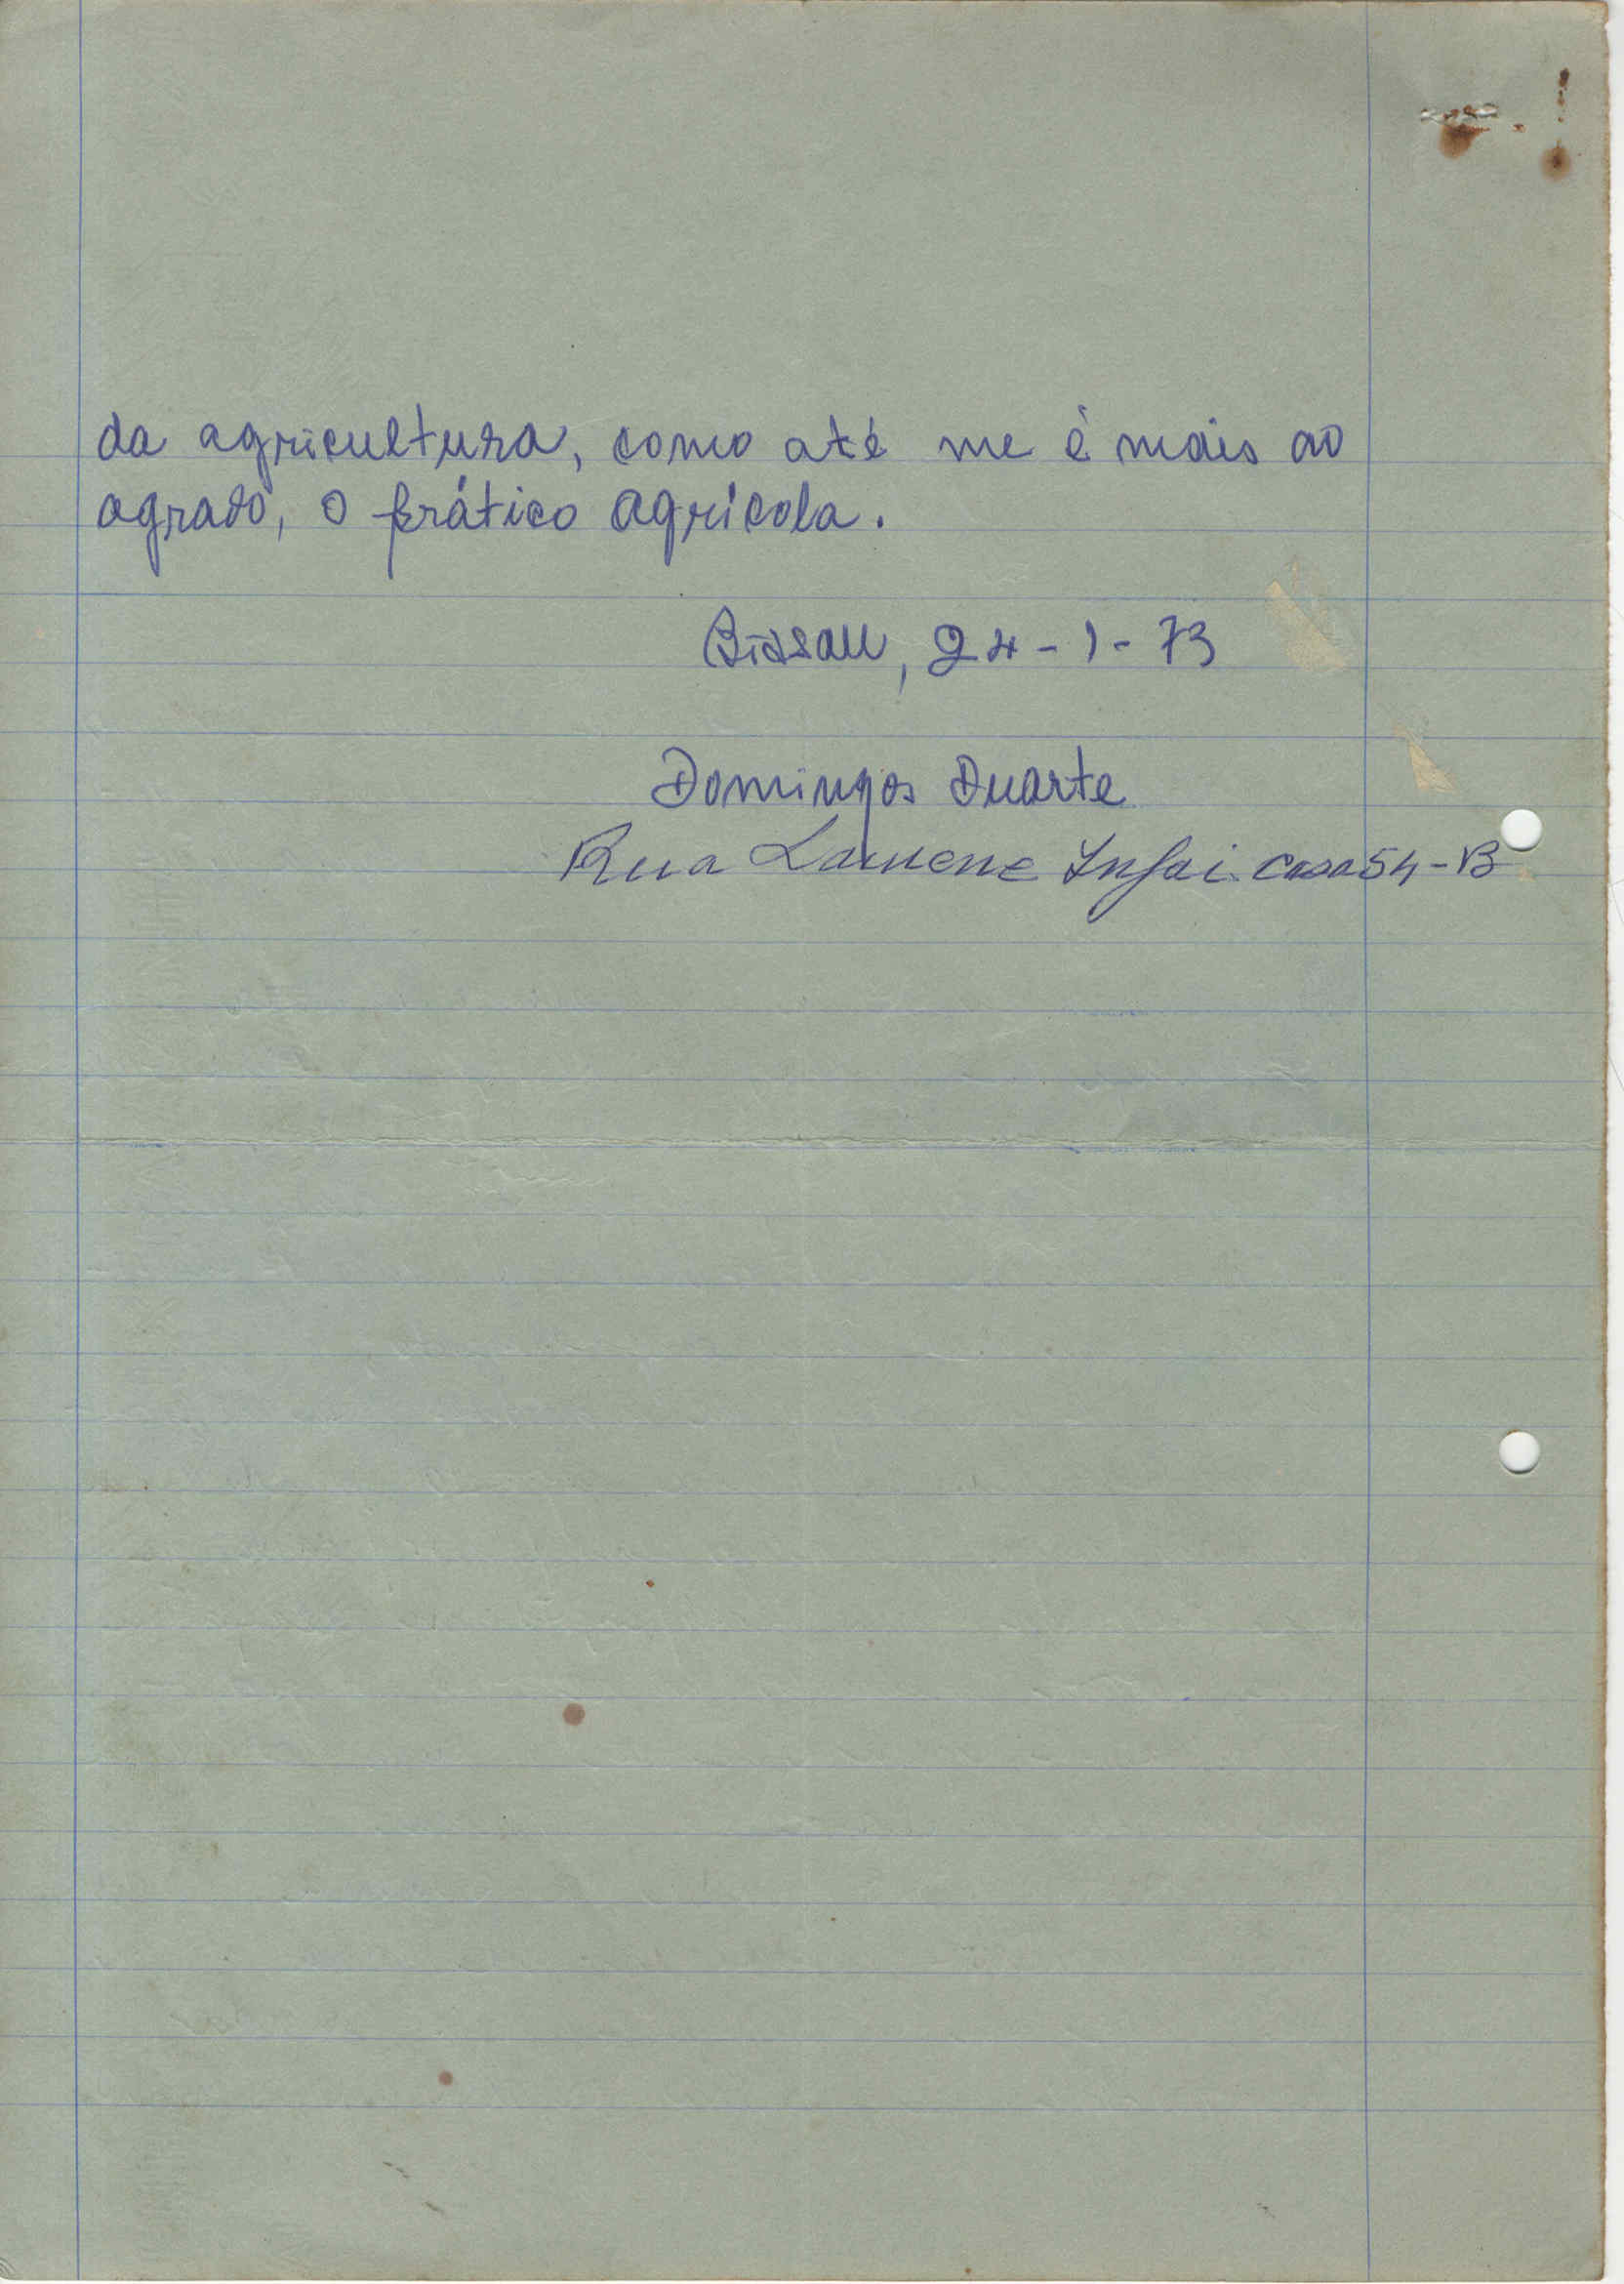 da agricultura, como até me é mais ao
agrado, o prático agrícola.
Bissau, 24-1-73
Domingos Duarte
Rua Lamene Infai casa 54-B